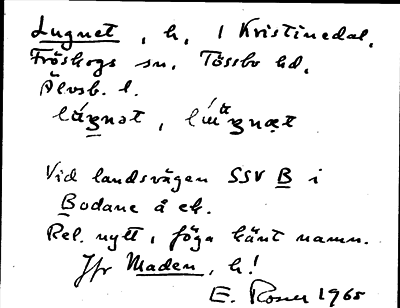 Lugnet, h. / Kristinedal,
Fröskogs sn, Tössbo hd,
Älvsb. l.
Vid landsvägen SSV B i
Bodane å ek.
Rel. nytt, föga känt namn.
Jfr Maden, h!
E. Rosur 1965